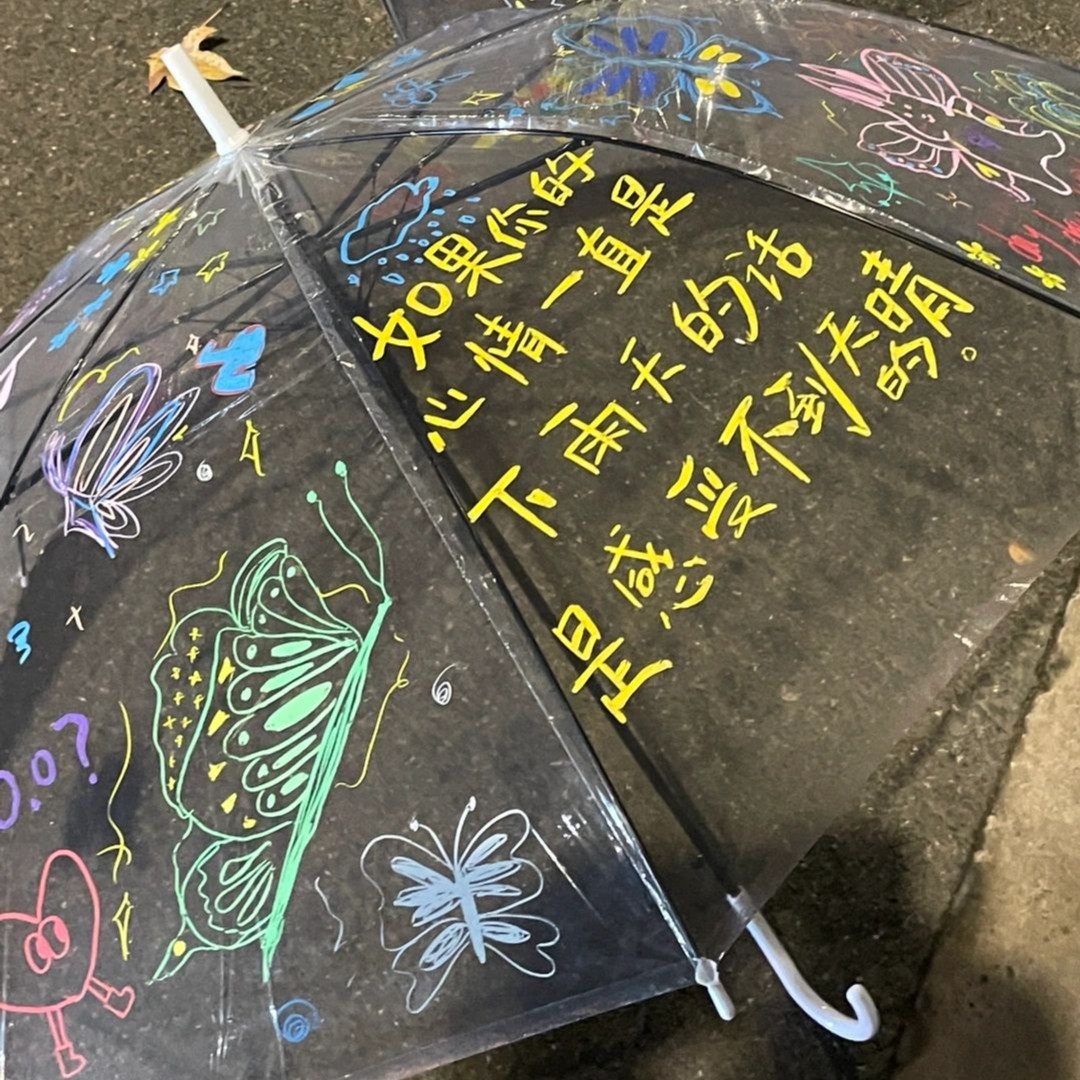 如果你的
心情一直是
下雨天的话
是感受不到天晴的。
0.0?